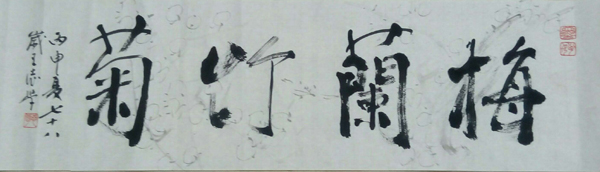 梅蘭竹菊
丙申夏七十八
歲王